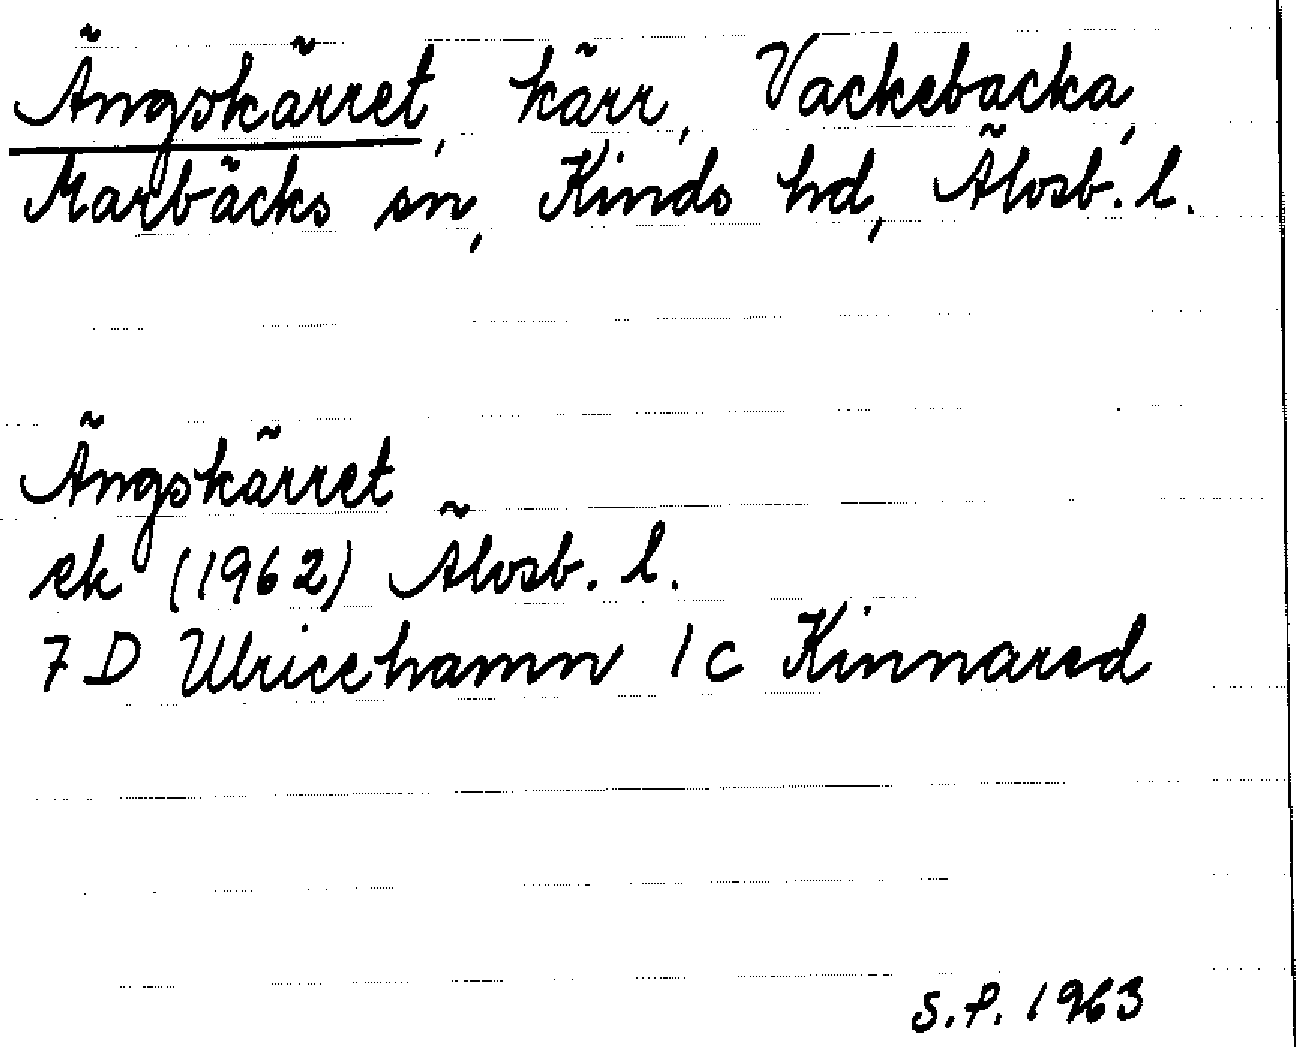 Ängskärret, kärr, Vackebacka,
Marbäcks sn, Kinds hd, Älvsb. l.
Ängskärret
ek (1962) Älvsb. l.
7 D Ulricehamn 1 c Kinnared
S.P. 1963